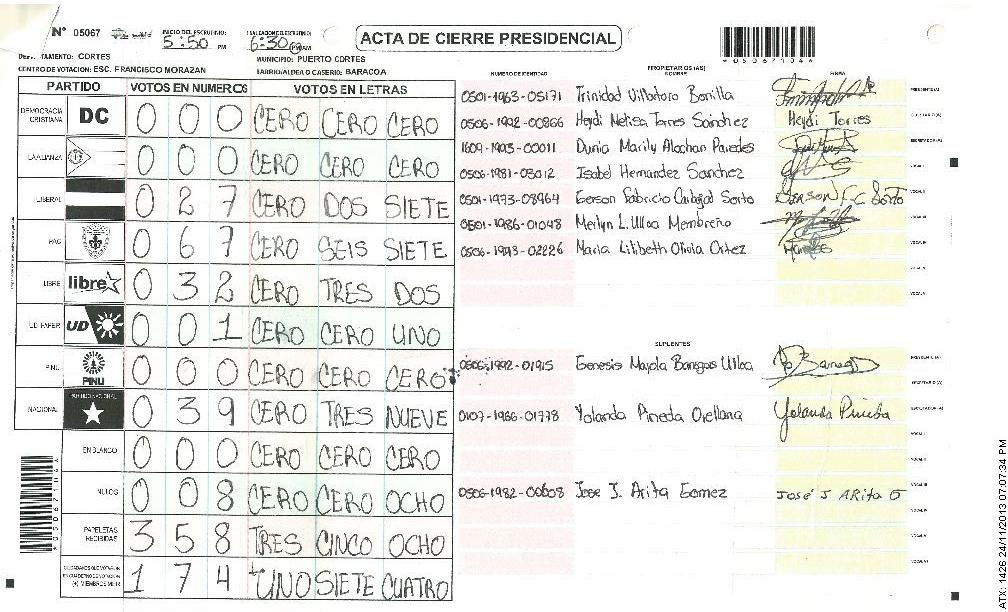 Nº 05067
INICIO DEL ESCRUTINIO:
5:50 PM
6:30 PM AM
ACTA DE CIERRE PRESIDENCIAL
DEPARTAMENTO: CORTES
MUNICIPIO: PUERTO CORTES
CENTRO DE VOTACION: ESC. FRANCISCO MORAZAN
BARRIO/ALDEA O CASERIO: BARACOA
PARTIDO VOTOS EN NUMEROS VOTOS EN LETRAS
DEMOCRACIA CRISTIANA DC 0 0 0 CERO CERO CERO
LA ALIANZA 0 0 0 CERO CERO CERO
LIBERAL 0 2 7 CERO DOS SIETE
PAC 0 6 7 CERO SEIS SIETE
LIBRE libre 0 3 2 CERO TRES DOS
UD PAPER UD 0 0 1 CERO CERO UNO
PINU PINU 0 0 0 CERO CERO CERO
NACIONAL PARTIDO NACIONAL 0 3 9 CERO TRES NUEVE
EN BLANCO 0 0 0 CERO CERO CERO
NULOS 0 0 8 CERO CERO OCHO
PAPELETAS RECIBIDAS 3 5 8 TRES CINCO OCHO
1 7 4 UNO SIETE CUATRO
NUMERO DE IDENTIDAD
PROPIETARIOS (AS)
NOMBRE
FIRMA
0501-1963-05171 Trinidad Villatoro Bonilla
0506-1992-00866 Heydi Melisa Torres Sánchez Heydi Torres
1609-1993-00011 Dunia Marily Alachan Paredes
0506-1981-03012 Isabel Hernandez Sanchez
0501-1993-08964 Gerson Fabricio Carbajal Sorto
0501-1986-01048 Merlyn L. Ulloa Membreño
0506-1993-02226 Maria Lilibeth Olivia Ortez
SUPLENTES
0506-1992-01915 Genesis Mayola Banegas Ulloa
0107-1986-01778 Yolanda Pineda Orellana Yolanda Pineda
0506-1982-00608 Jose J. Arita Gomez José J ARita G
ATX-1426 24/11/2013 07:07:34 PM